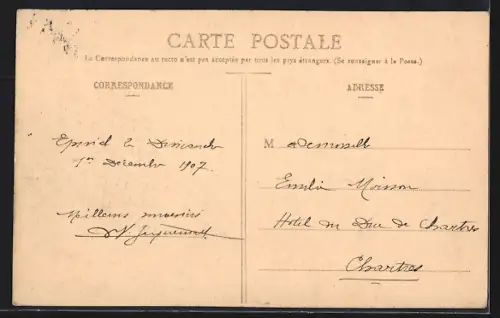 CARTE POSTALE
La Correspondance au recto n'est pas acceptée par tous les pays étrangers. (Se renseigner à la Poste.)
CORRESPONDANCE
ADRESSE
le Dimanche
1er Décembre 1907.
Meilleurs souvenirs
Mademoiselle
Emilie Moisson
Hotel du Duc de Chartres
Chartres